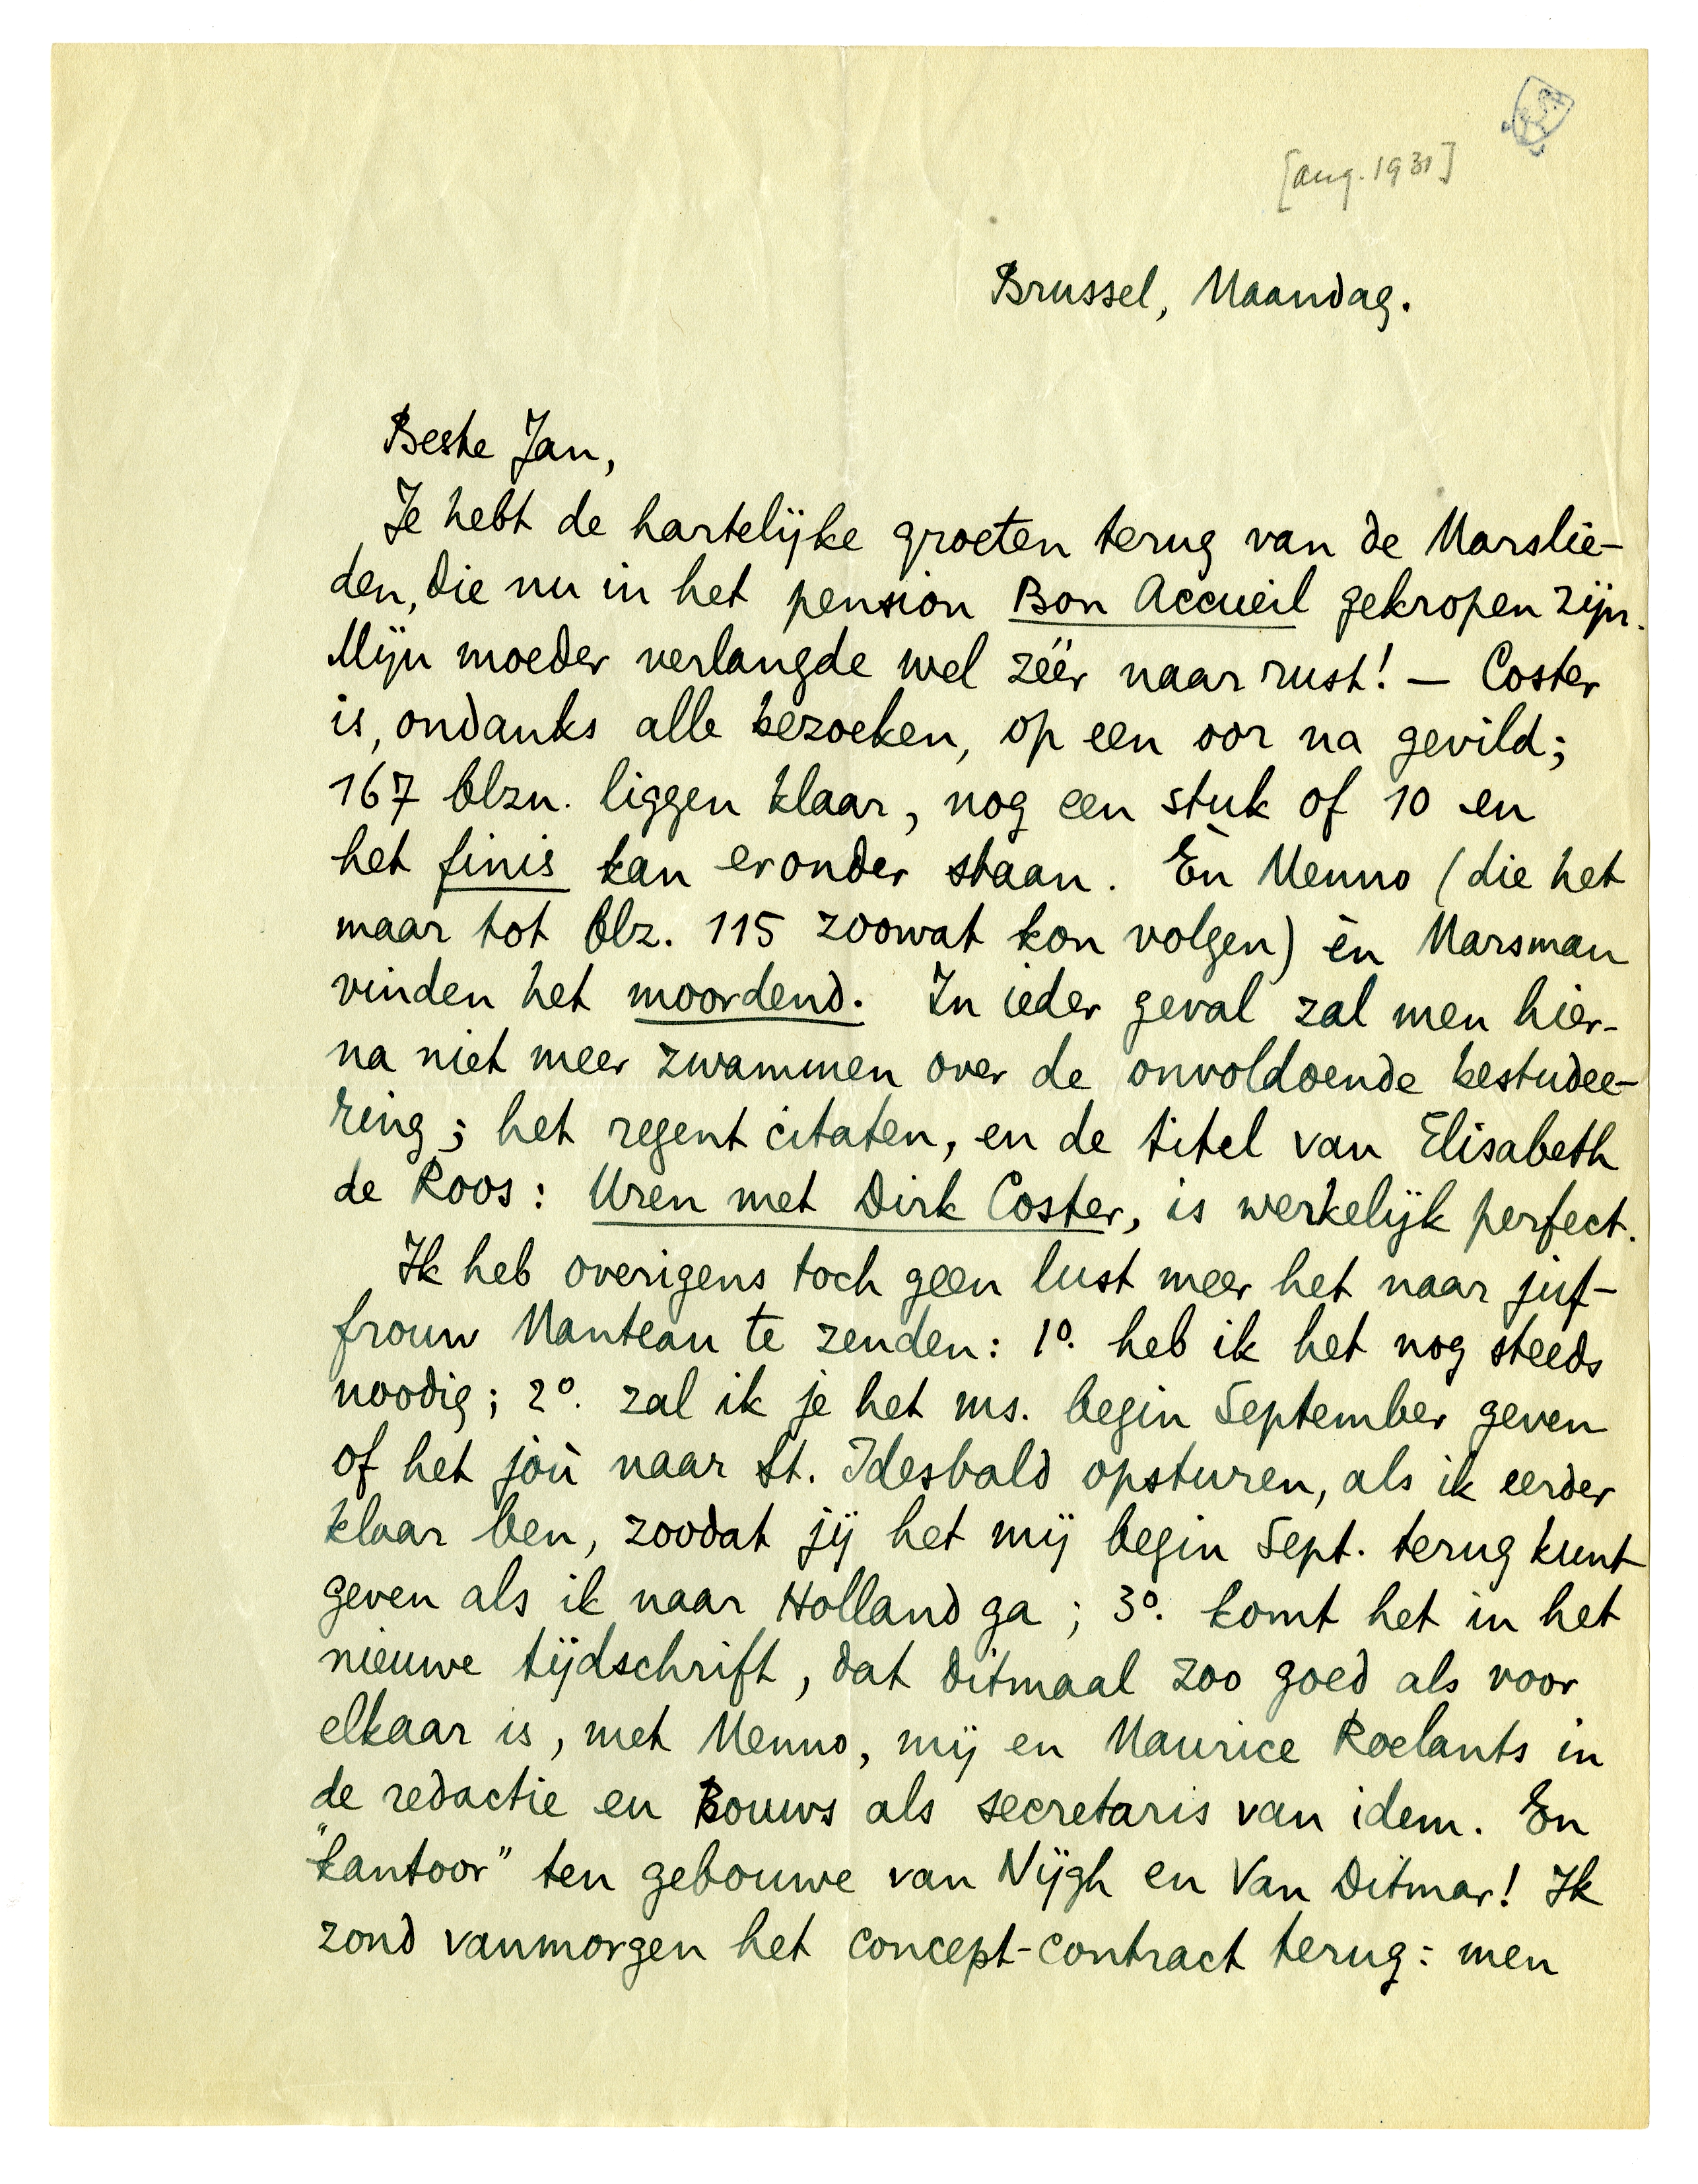 [aug. 1931]
Brussel, Maandag.
Beste Jan,
Je hebt de hartelijke groeten terug van de Marslie-
den, die nu in het pension Bon Accueil gekropen zijn.
Mijn moeder verlangde wel zéér naar rust! — Coster
is, ondanks alle bezoeken, op een oor na gevild;
167 blzn. liggen klaar, nog een stuk of 10 en
het finis kan eronder staan. Èn Menno (die het
maar tot blz. 115 zoowat kon volgen) èn Marsman
vinden het moordend. In ieder geval zal men hier-
na niet meer zwammen over de onvoldoende bestudee-
ring; het regent citaten, en de titel van Elisabeth
de Roos: Uren met Dirk Coster, is werkelijk perfect.
Ik heb overigens toch geen lust meer het naar juf-
frouw Manteau te zenden: 1º. heb ik het nog steeds
noodig; 2º. zal ik je het ms. begin September geven
of het jou naar St. Idesbald opsturen, als ik eerder
klaar ben, zoodat jij het mij begin Sept. terug kunt
geven als ik naar Holland ga; 3º. komt het in het
nieuwe tijdschrift, dat ditmaal zoo goed als voor
elkaar is, met Menno, mij en Maurice Roelants in
de redactie en Bouws als secretaris van idem. En
"kantoor" ten gebouwe van Nijgh en Van Ditmar! Ik
zond vanmorgen het concept-contract terug: men